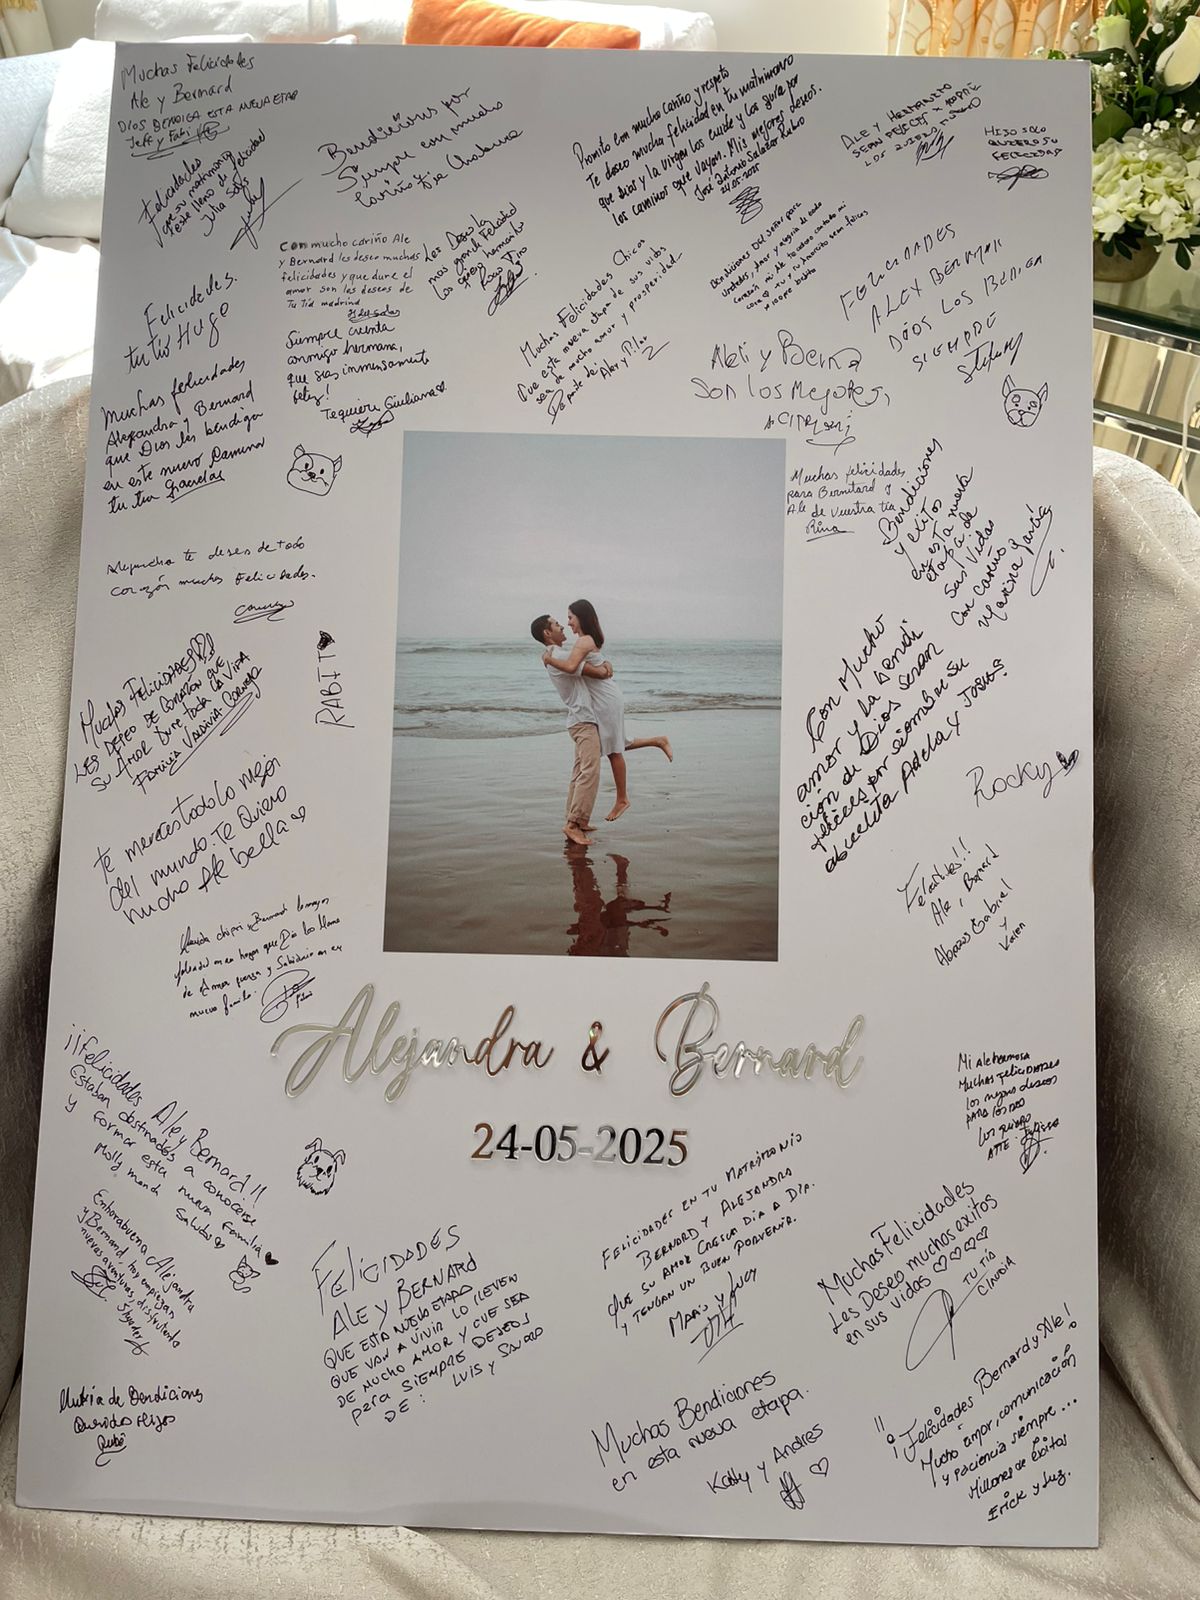 Muchas Felicidades
Ale y Bernard
DIOS BENDIGA ESTA NUEVA ETAP
Jeff y Fabi
Felicidades
que su matrimonio
este lleno de felicidad
Julia Solis
Bendiciones por
Siempre con mucho
Cariño Tía Charbuca
Con mucho cariño Ale
y Bernard les deseo muchas
felicidades y que dure el
amor son los deseos de
Tu Tía madrina
Les Deseo la
mas grande Felicidad
los quiero hermanito
Promito con mucho cariño y respeto
Te deseo mucha felicidad en tu matrimonio
que dios y la virgen los cuide y los guía por
los caminos que vayan. Mis mejores deseos.
José Antonio Salazar Rubio
24.05.2025
ALE Y HERMANITO
SEAN FELICES X SIEMPRE
LOS QUIERO MUCHO
HIJO SOLO
QUIERO SU
FELICIDAD
Bendiciones del señor para
ustedes, amor y alegría de todo
corazón
Muchas Felicidades Chicos
Que esta nueva etapa de sus vidas
sea de mucho amor y prosperidad
De parte de: Alex y Pilar
FELICIDADES
ALE X BERNAR
DIOS LOS BENDIGA
SIEMPRE
Felicidades.
tu tío Hugo
Siempre cuenta
conmigo hermana,
que seas inmensamente
feliz!
Te quiere Giuliana
Aleli y Berna
Son los Mejores,
Muchas felicidades
Alejandra y Bernard
que Dios les bendiga
en este nuevo Camino
tu tía Graciela
Muchas felicidades
para Bernitard y
Ale de vuestra tía
Rina
Bendiciones
y exitos
en esta nueva
etapa de
sus vidas
Con cariño
Marina García
Alejandra te deseo de todo
corazón muchas Felicidades.
MUCHAS FELICIDADES
LES DESEO DE CORAZÓN QUE
SU AMOR DURE TODA LA VIDA
FAMILIA VALDIVIA CORNEJO
RABITT
Con Mucho
amor y la bendi
cion de Dios sean
felices por siempre su
abuelita Adela y Josue
Rocky
te mereces todo lo mejor
del mundo. Te Quiero
mucho Ale bella
Felicidades!!
Ale, Bernard
Abrazos Gabriel
y
Karen
Alejandra & Bernard
24-05-2025
¡¡Felicidades Ale y Bernard!!
Estaban destinados a conocerse
y formar esta nueva familia
Molly manda saludos
Mi Ale hermosa
Muchas felicidades
los mejores deseos
para los dos
los quiero
Enhorabuena Alejandra
y Bernard, hoy empiezan
nuevas aventuras, disfrutenla
FELICIDADES
ALE Y BERNARD
QUE ESTA NUEVA ETAPA
QUE VAN A VIVIR LO LLEVEN
DE MUCHO AMOR Y QUE SEA
para SIEMPRE DESEOS
DE: LUIS y SANDRO
FELICIDADES EN TU MATRIMONIO
BERNARD Y ALEJANDRA
QUE SU AMOR CRESCA DIA A DIA.
Y TENGAN UN BUEN PORVENIR.
MARIO y LUCY
Muchas Felicidades
Les Deseo muchos exitos
en sus vidas
TU TÍA
CLAUDIA
Muchas Bendiciones
en esta nueva etapa.
Katty y Andres
¡¡Felicidades Bernard y Ale!
Mucho amor, comunicación
y paciencia siempre...
Millones de éxitos
Erick y Luz.
de Bendiciones
Queridos Hijos